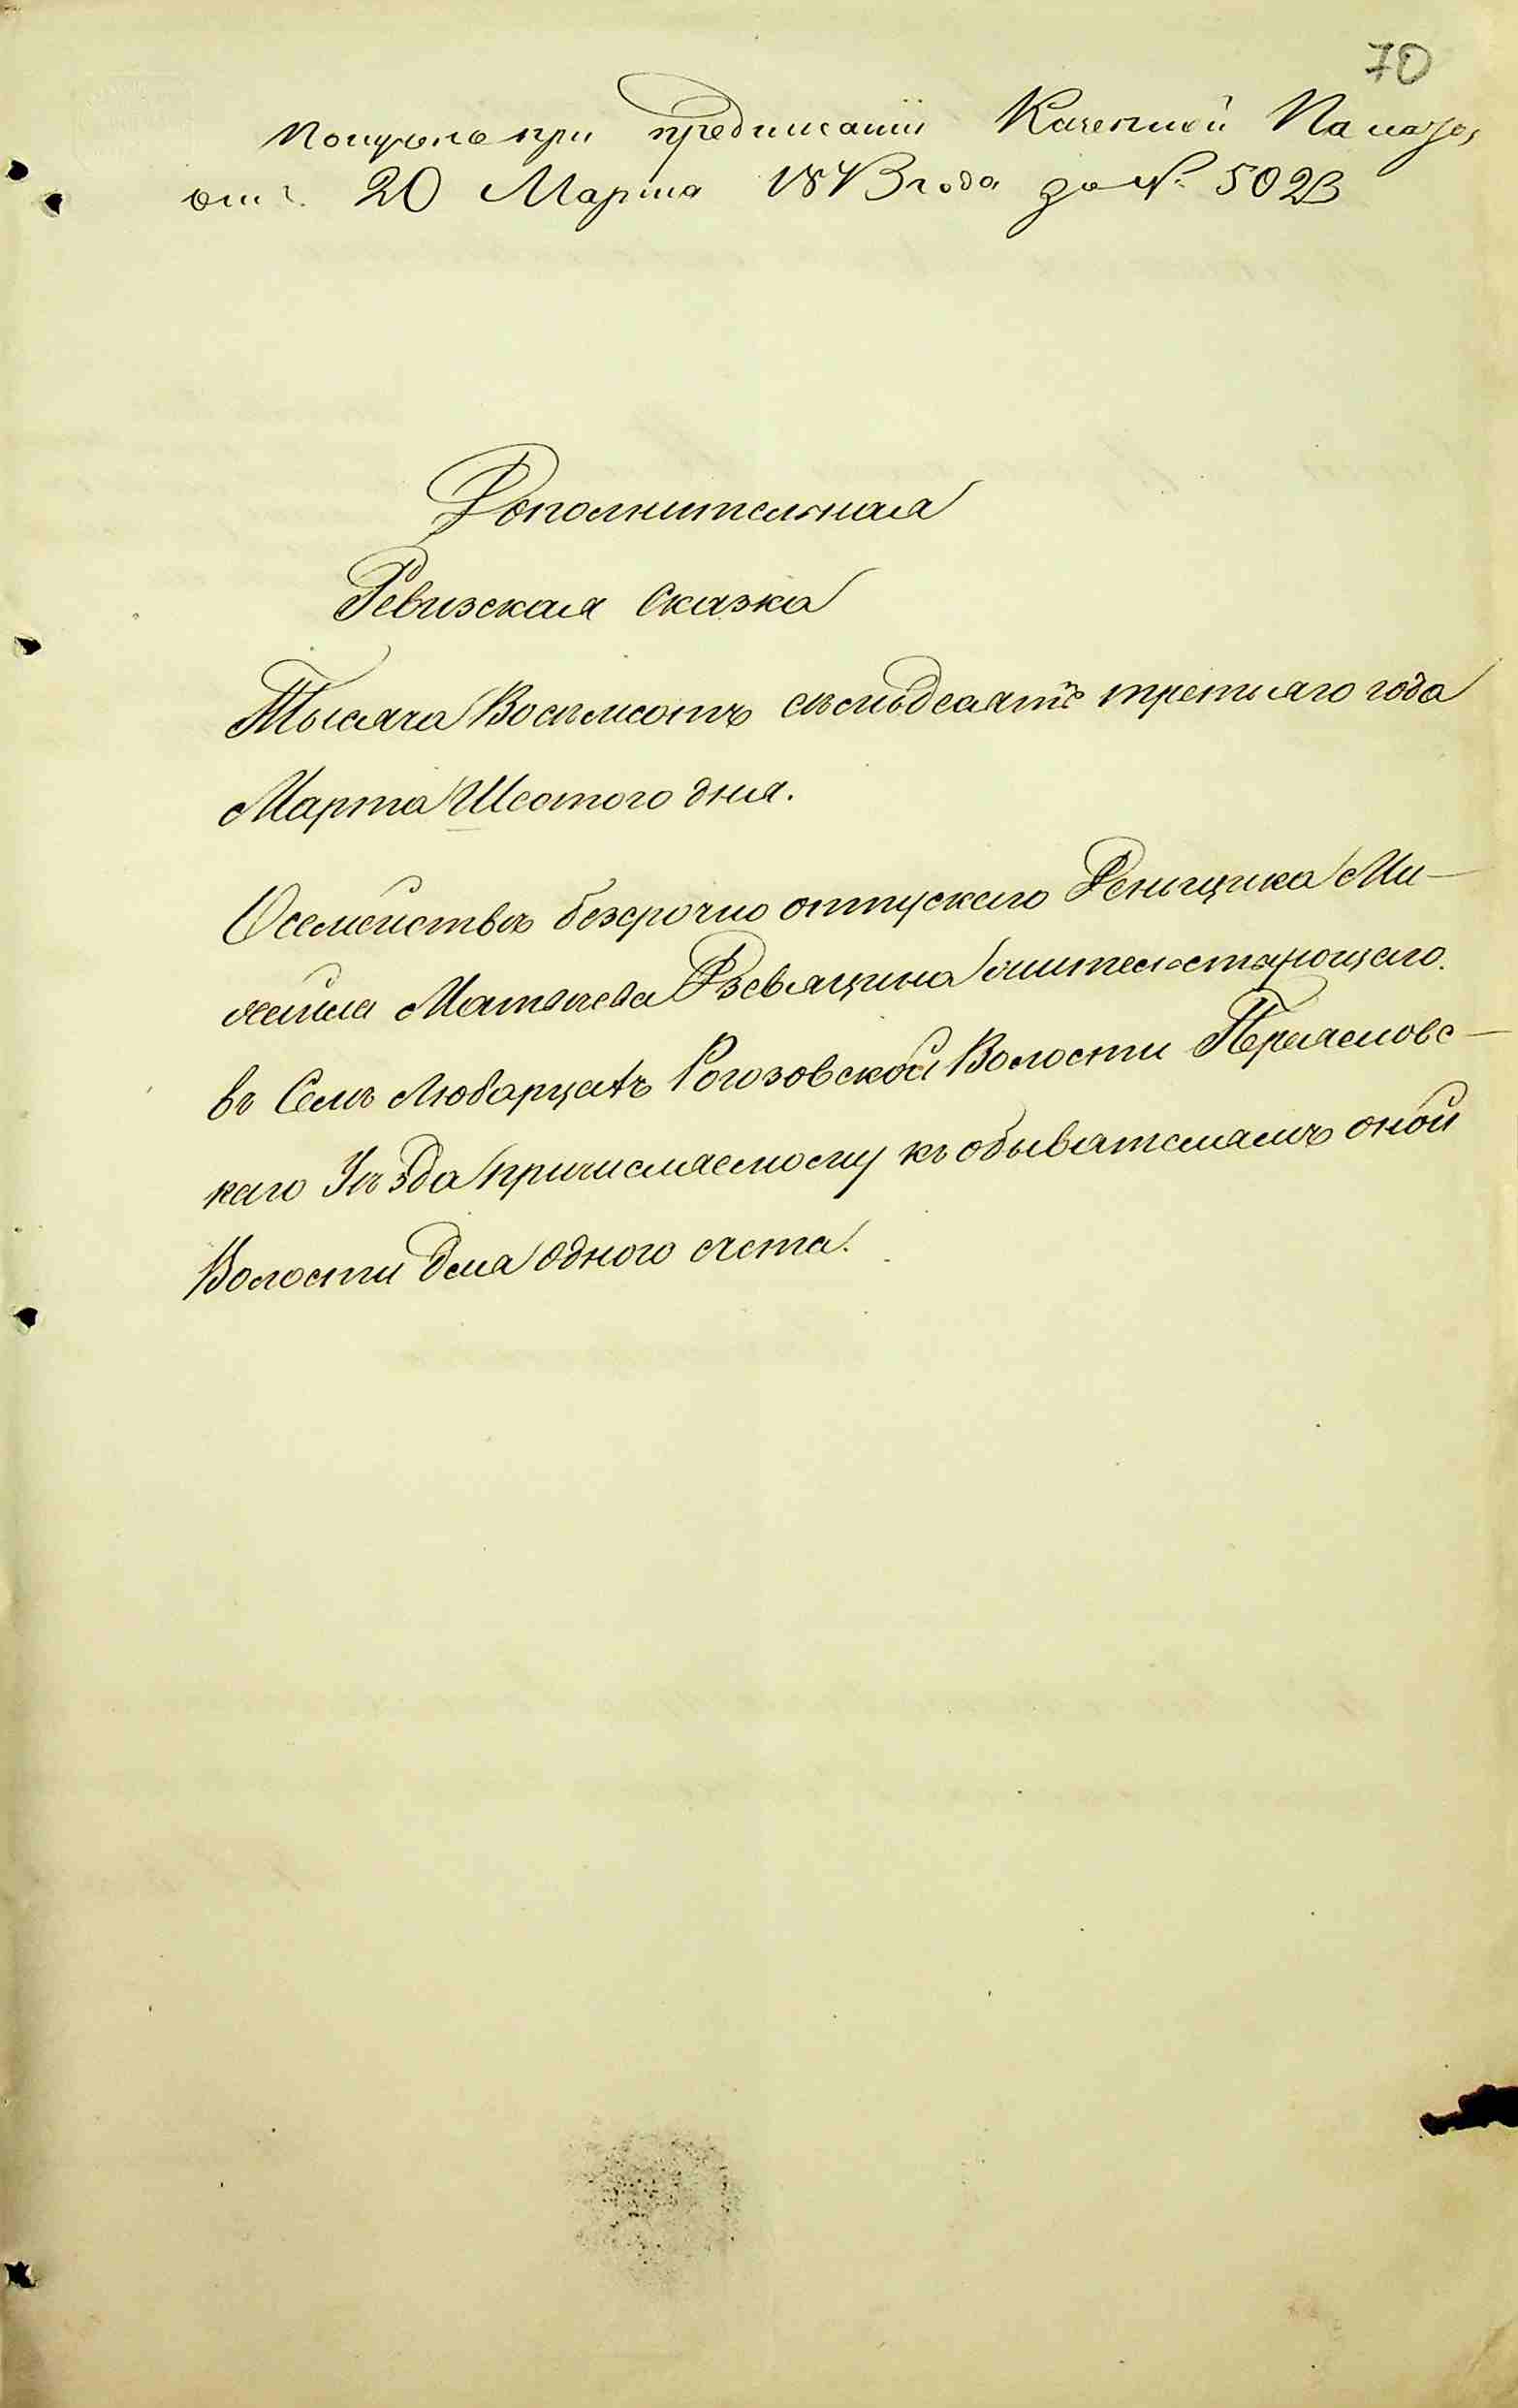 70
Получено при предписаніи Казенной Палаты
отъ 20 Марта 1873 года за № 5023
Дополнительная
Ревизская сказка
Тысяча Восемьсотъ семьдесятъ третьяго года
Марта Шестого дня.
О семействѣ безсрочно отпуского Деньщика Ми-
хаила Матвѣева жительствующего
въ Селѣ Любарцахъ Рогозовской Волости Переясловс-
каго Уѣзда причисляемому къ обывателямъ оной
Волости для одного счета.